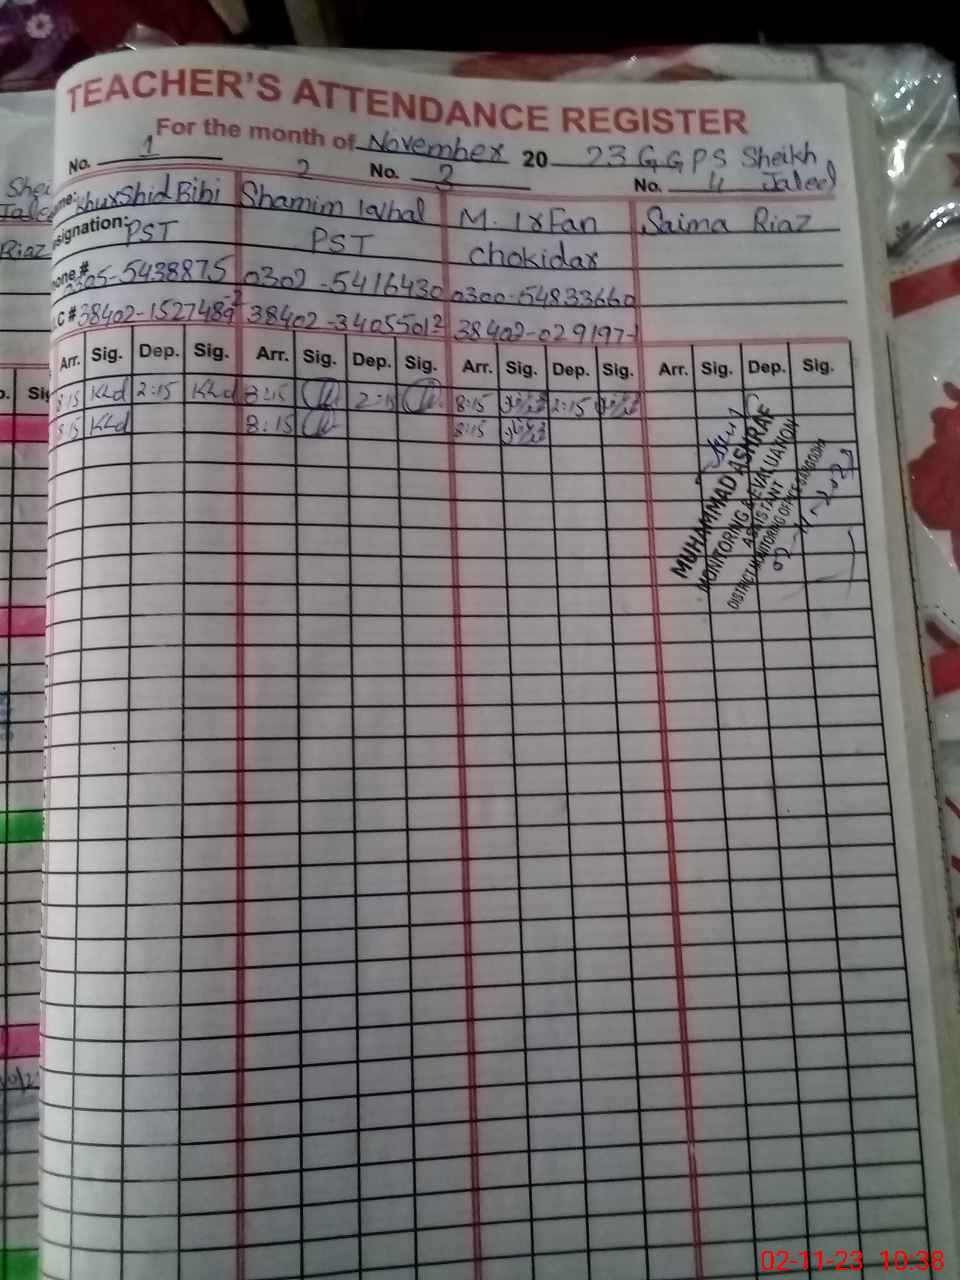 TEACHER'S ATTENDANCE REGISTER
For the month of November 2023 GGPS Sheikh Jaleel
No. 1 2 No. 3 No. 4
Khurshid Bibi Shamim Iqbal M. Irfan Saima Riaz
signation: PST PST Chokidar
one # 0305-5438875 0302-5416430 0300-54833660
.C # 38402-1527489 38402-3405501 38402-029197
Arr. Sig. Dep. Sig. Arr. Sig. Dep. Sig. Arr. Sig. Dep. Sig. Arr. Sig. Dep. Sig.
8:15 Khd 2:15 Khd 8:15 2:15 8:15 2:15
8:15 Khd 8:15 8:15
MUHAMMAD ASHRAF
MONITORING & EVALUATION
ASSISTANT
DISTRICT MONITORING OFFICE SARGODHA
02-11-2023
Riaz
02-11-23 10:38